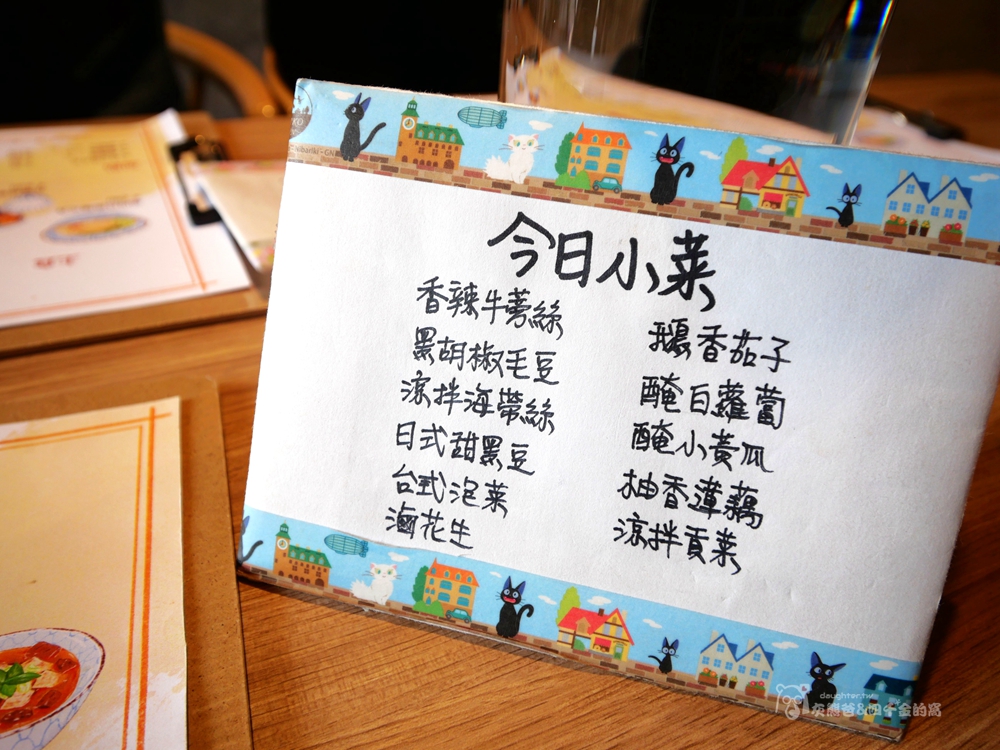 今日小菜
香辣牛蒡絲
黑胡椒毛豆
涼拌海帶絲
日式甜黑豆
台式泡菜
滷花生
香茄子
醃白蘿蔔
醃小黃瓜
柚香蓮藕
涼拌貢菜
daughter.tw
灰熊爸&四千金的窩